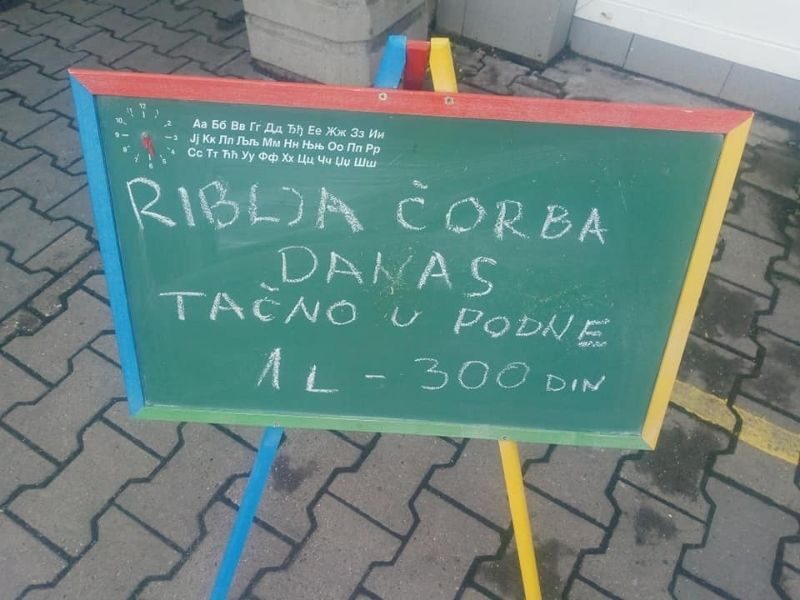 Аа Бб Вв Гг Дд Ђђ Ее Жж Зз Ии
Јј Кк Лл Љљ Мм Нн Њњ Оо Пп Рр
Сс Тт Ћћ Уу Фф Хх Цц Чч Џџ Шш
RIBLJA ČORBA
DANAS
TAČNO U PODNE
1L - 300 DIN